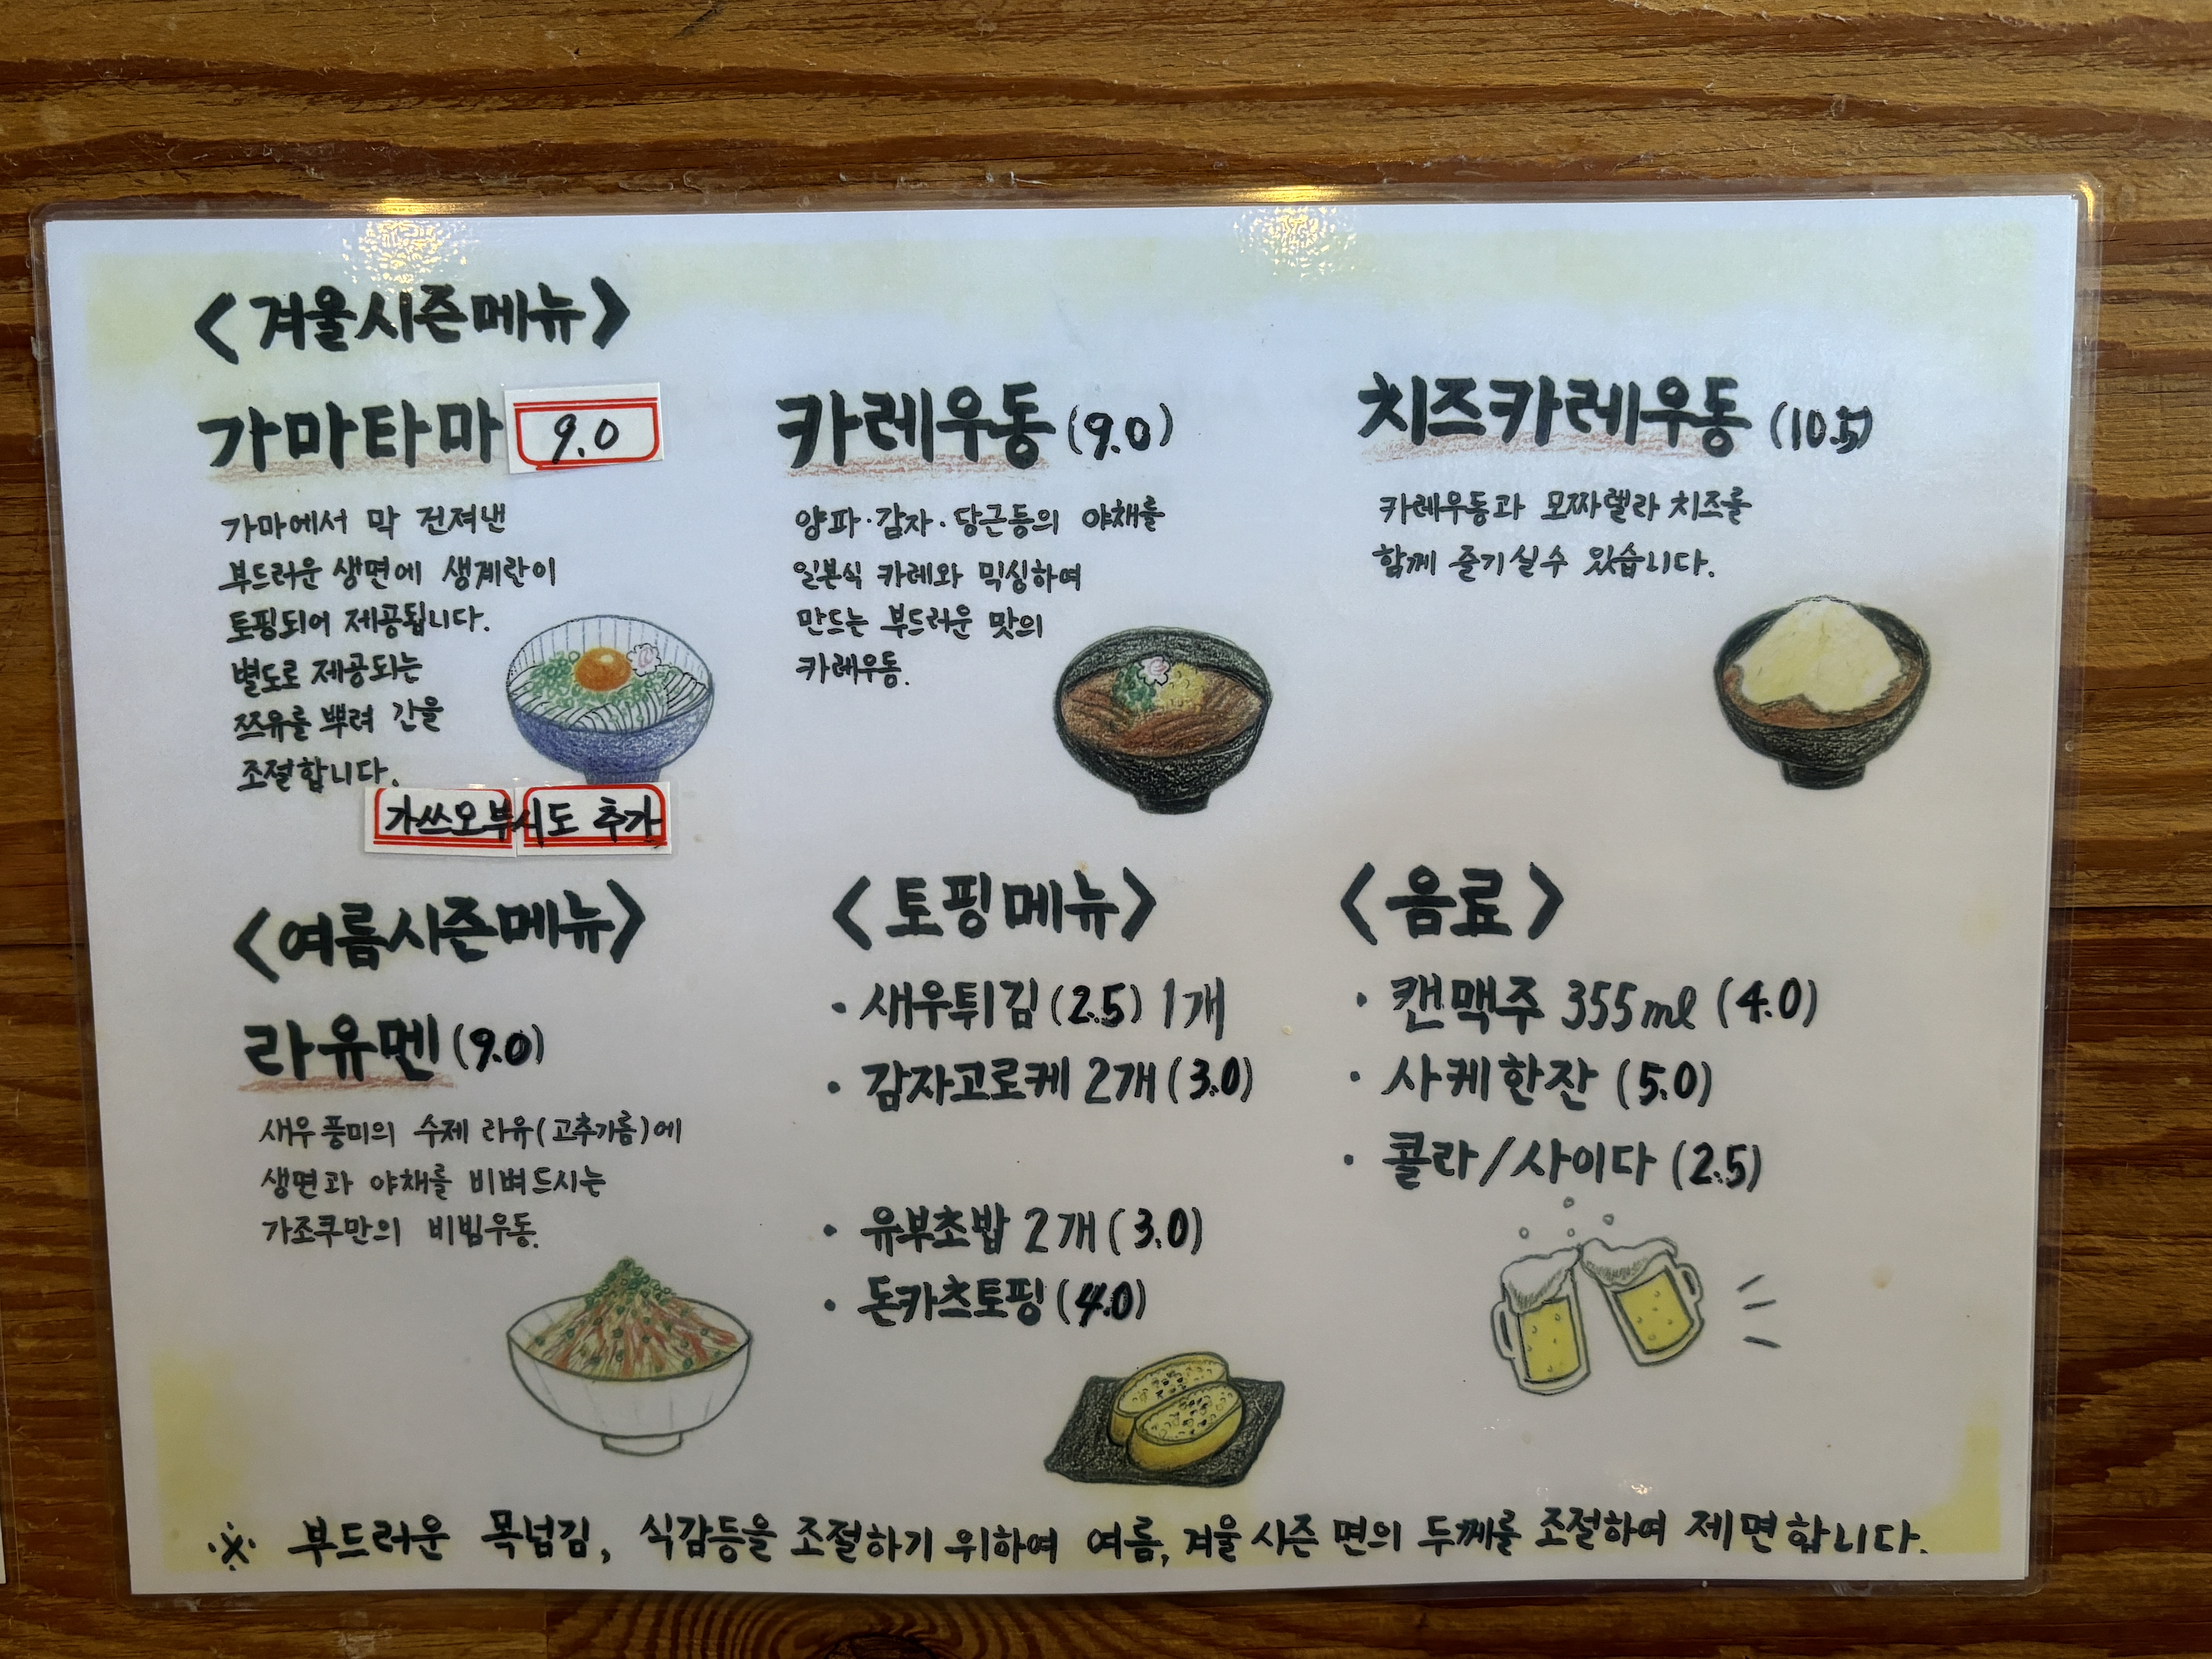 <겨울시즌메뉴>
가마타마 9.0
가마에서 막 건져낸
부드러운 생면에 생계란이
토핑되어 제공됩니다.
별도로 제공되는
쯔유를 뿌려 간을
조절합니다.
가쓰오부시도 추가
카레우동 (9.0)
양파·감자·당근등의 야채를
일본식 카레와 믹싱하여
만드는 부드러운 맛의
카레우동.
치즈카레우동 (10.5)
카레우동과 모짜렐라 치즈를
함께 즐기실수 있습니다.
<여름시즌메뉴>
라유멘 (9.0)
새우풍미의 수제 라유(고추기름)에
생면과 야채를 비벼드시는
가조쿠만의 비빔우동.
<토핑메뉴>
· 새우튀김 (2.5) 1개
· 감자고로케 2개 (3.0)
· 유부초밥 2개 (3.0)
· 돈카츠토핑 (4.0)
<음료>
· 캔맥주 355ml (4.0)
· 사케한잔 (5.0)
· 콜라/사이다 (2.5)
※ 부드러운 목넘김, 식감등을 조절하기 위하여 여름, 겨울 시즌 면의 두께를 조절하여 제면합니다.